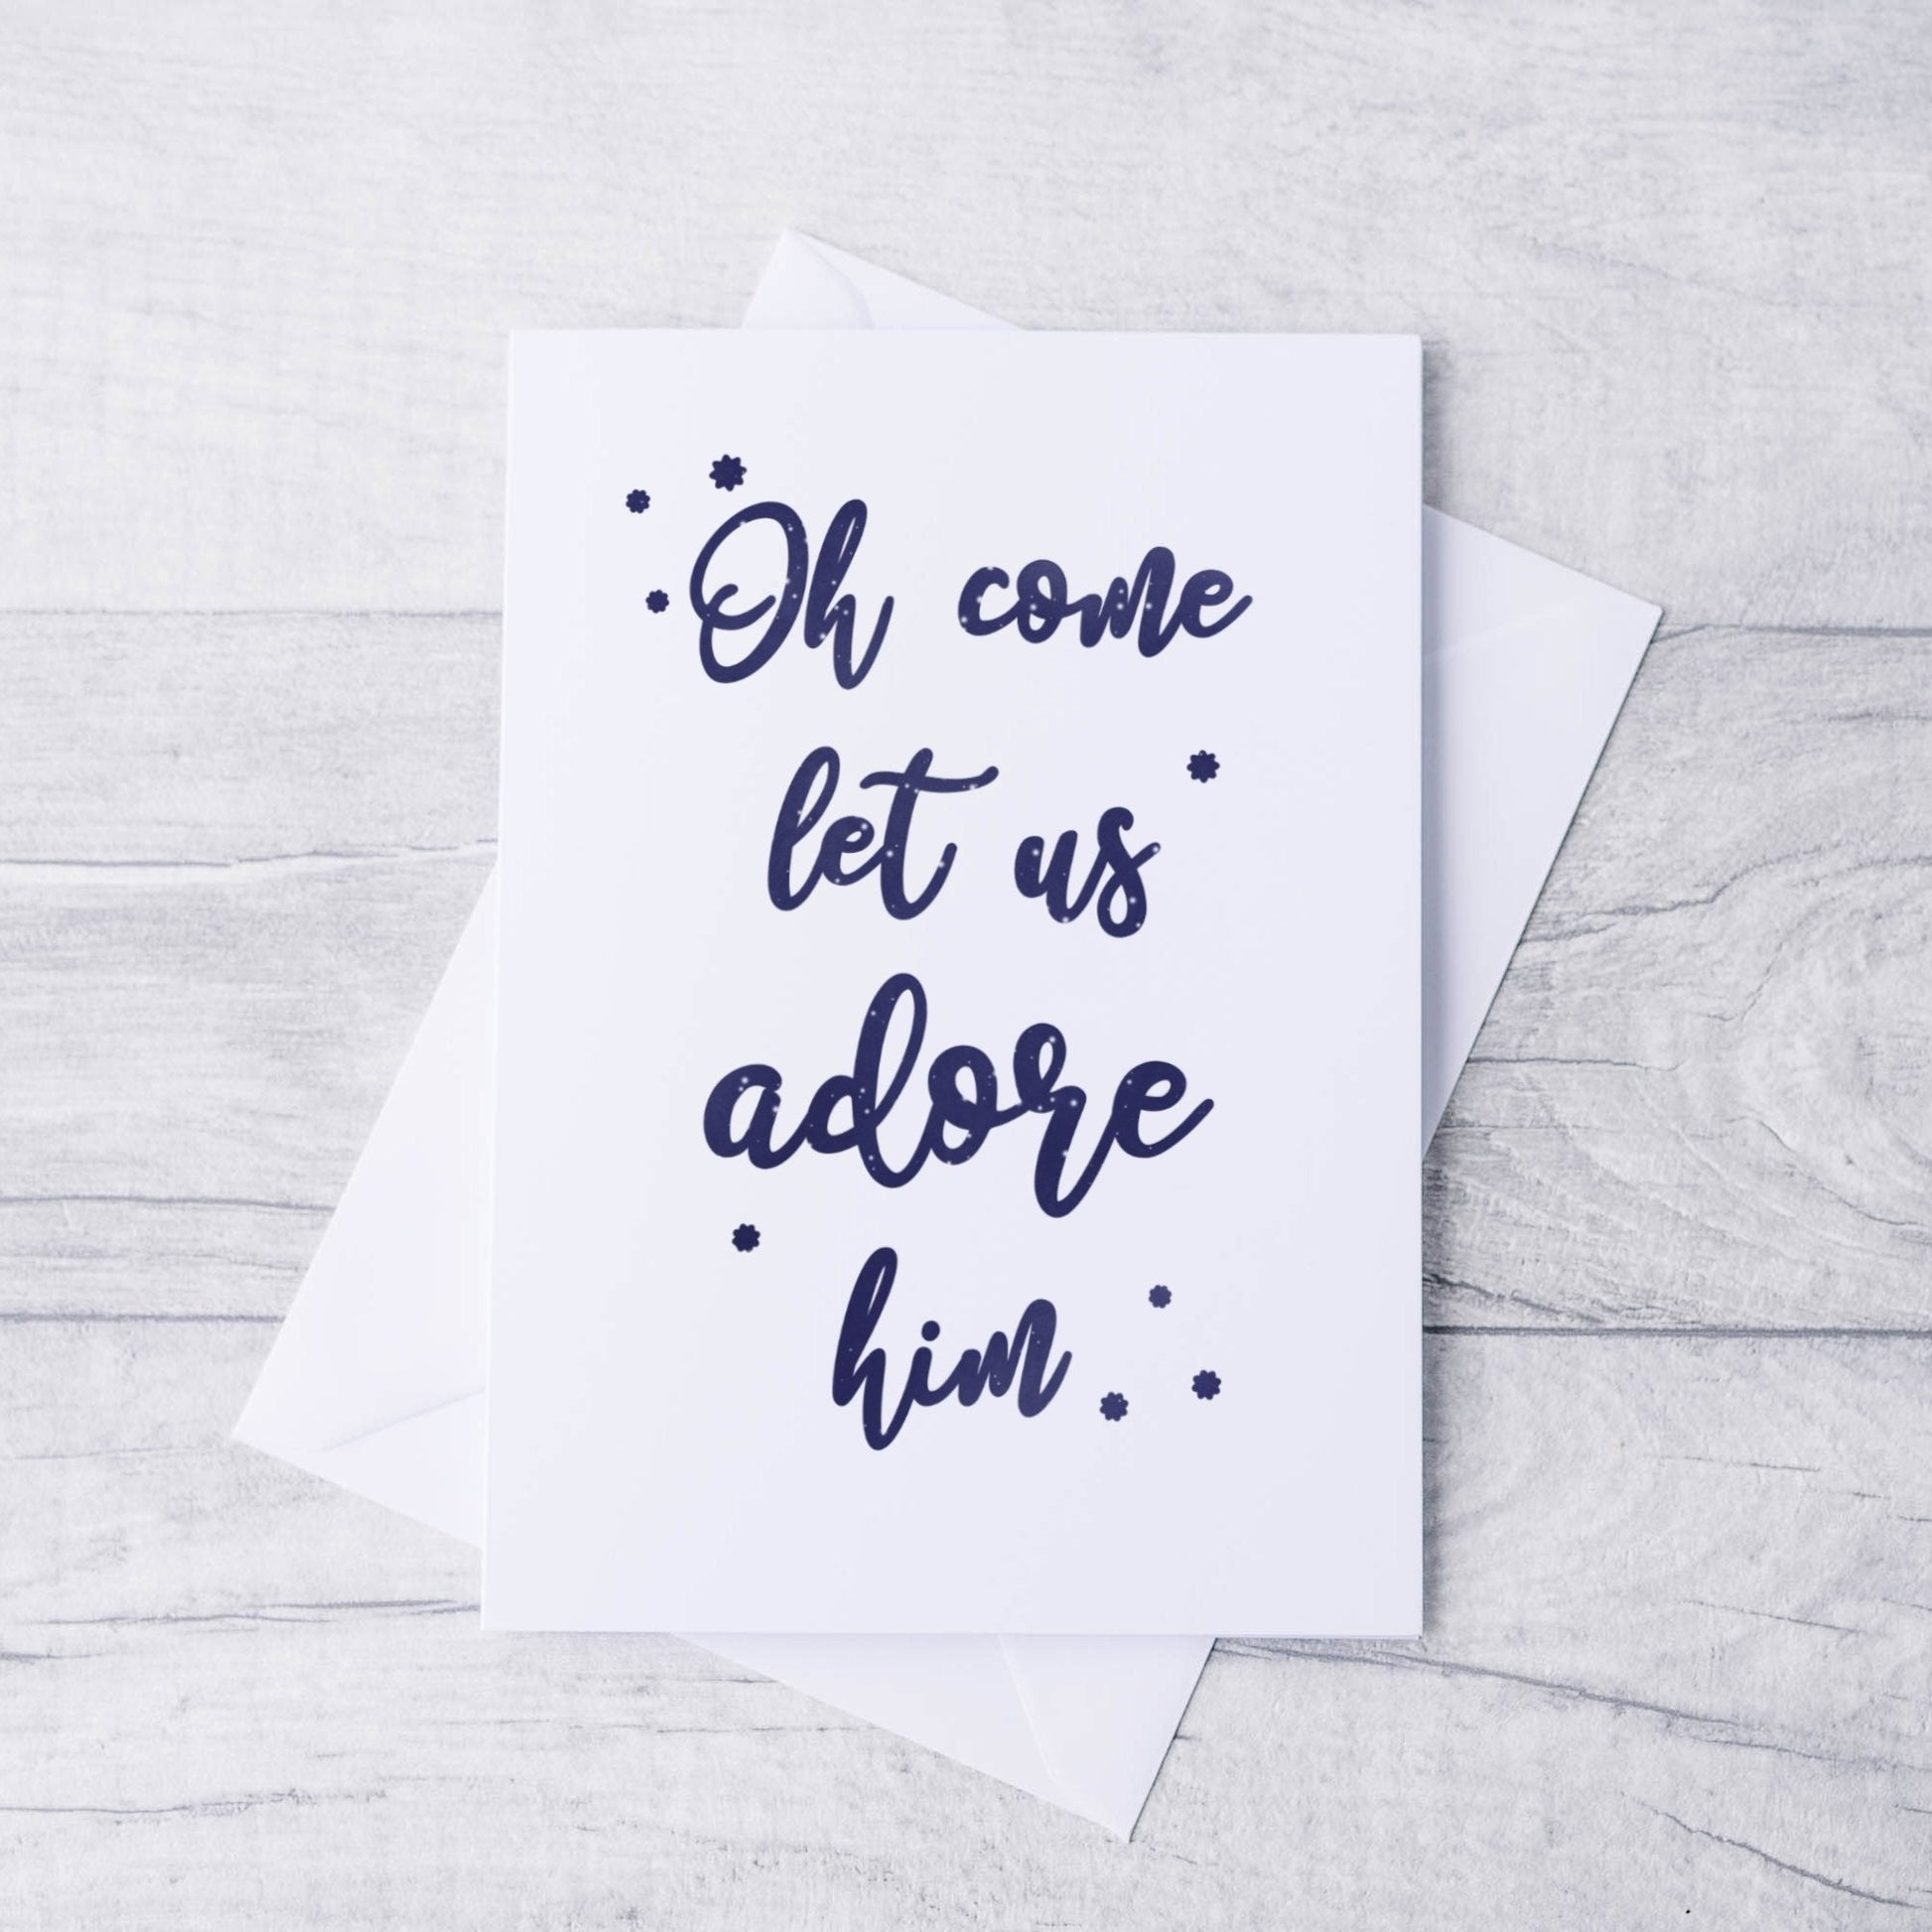 Oh come
let us
adore
him